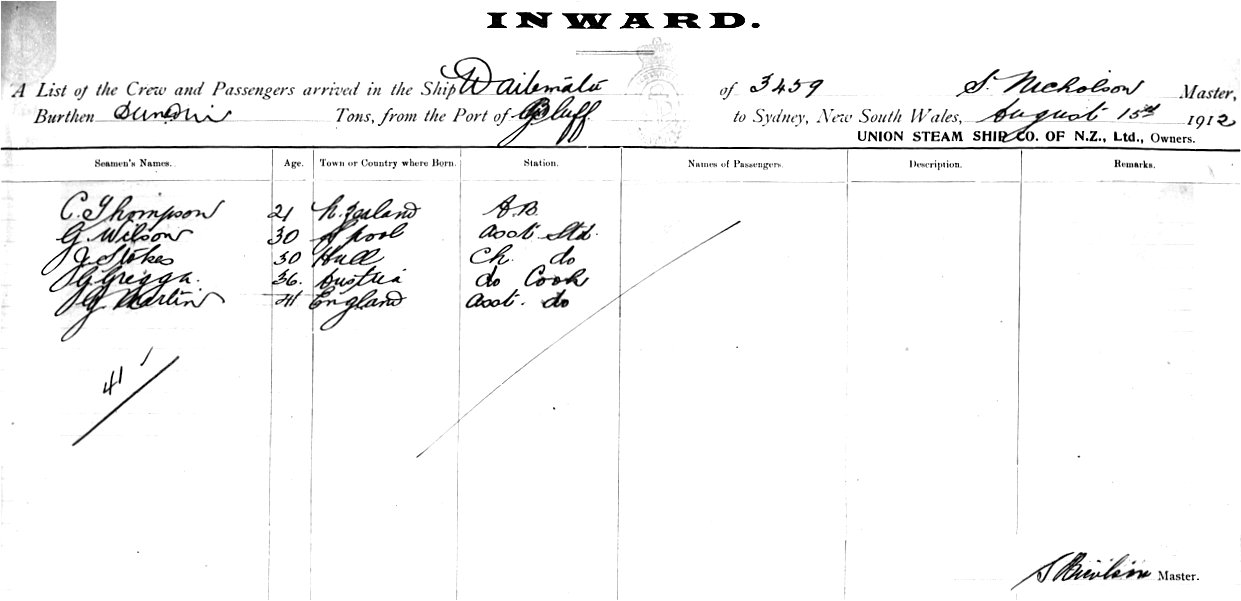 INWARD.
A List of the Crew and Passengers arrived in the Ship Waitemata of 3459 S. Nicholson Master,
Burthen Dunedin Tons, from the Port of Bluff to Sydney, New South Wales, August 15th 1912
UNION STEAM SHIP CO. OF N.Z., Ltd., Owners.
Seamen's Names. Age. Town or Country where Born. Station. Names of Passengers. Description. Remarks.
C. Thompson 21 N. Zealand A.B.
G. Wilson 30 L'pool Asst. Std.
J. Stokes 30 Hull Ch. do
G. Gregga. 36. Austria do Cook
J. Martin 41 England Asst. do
41
Master.